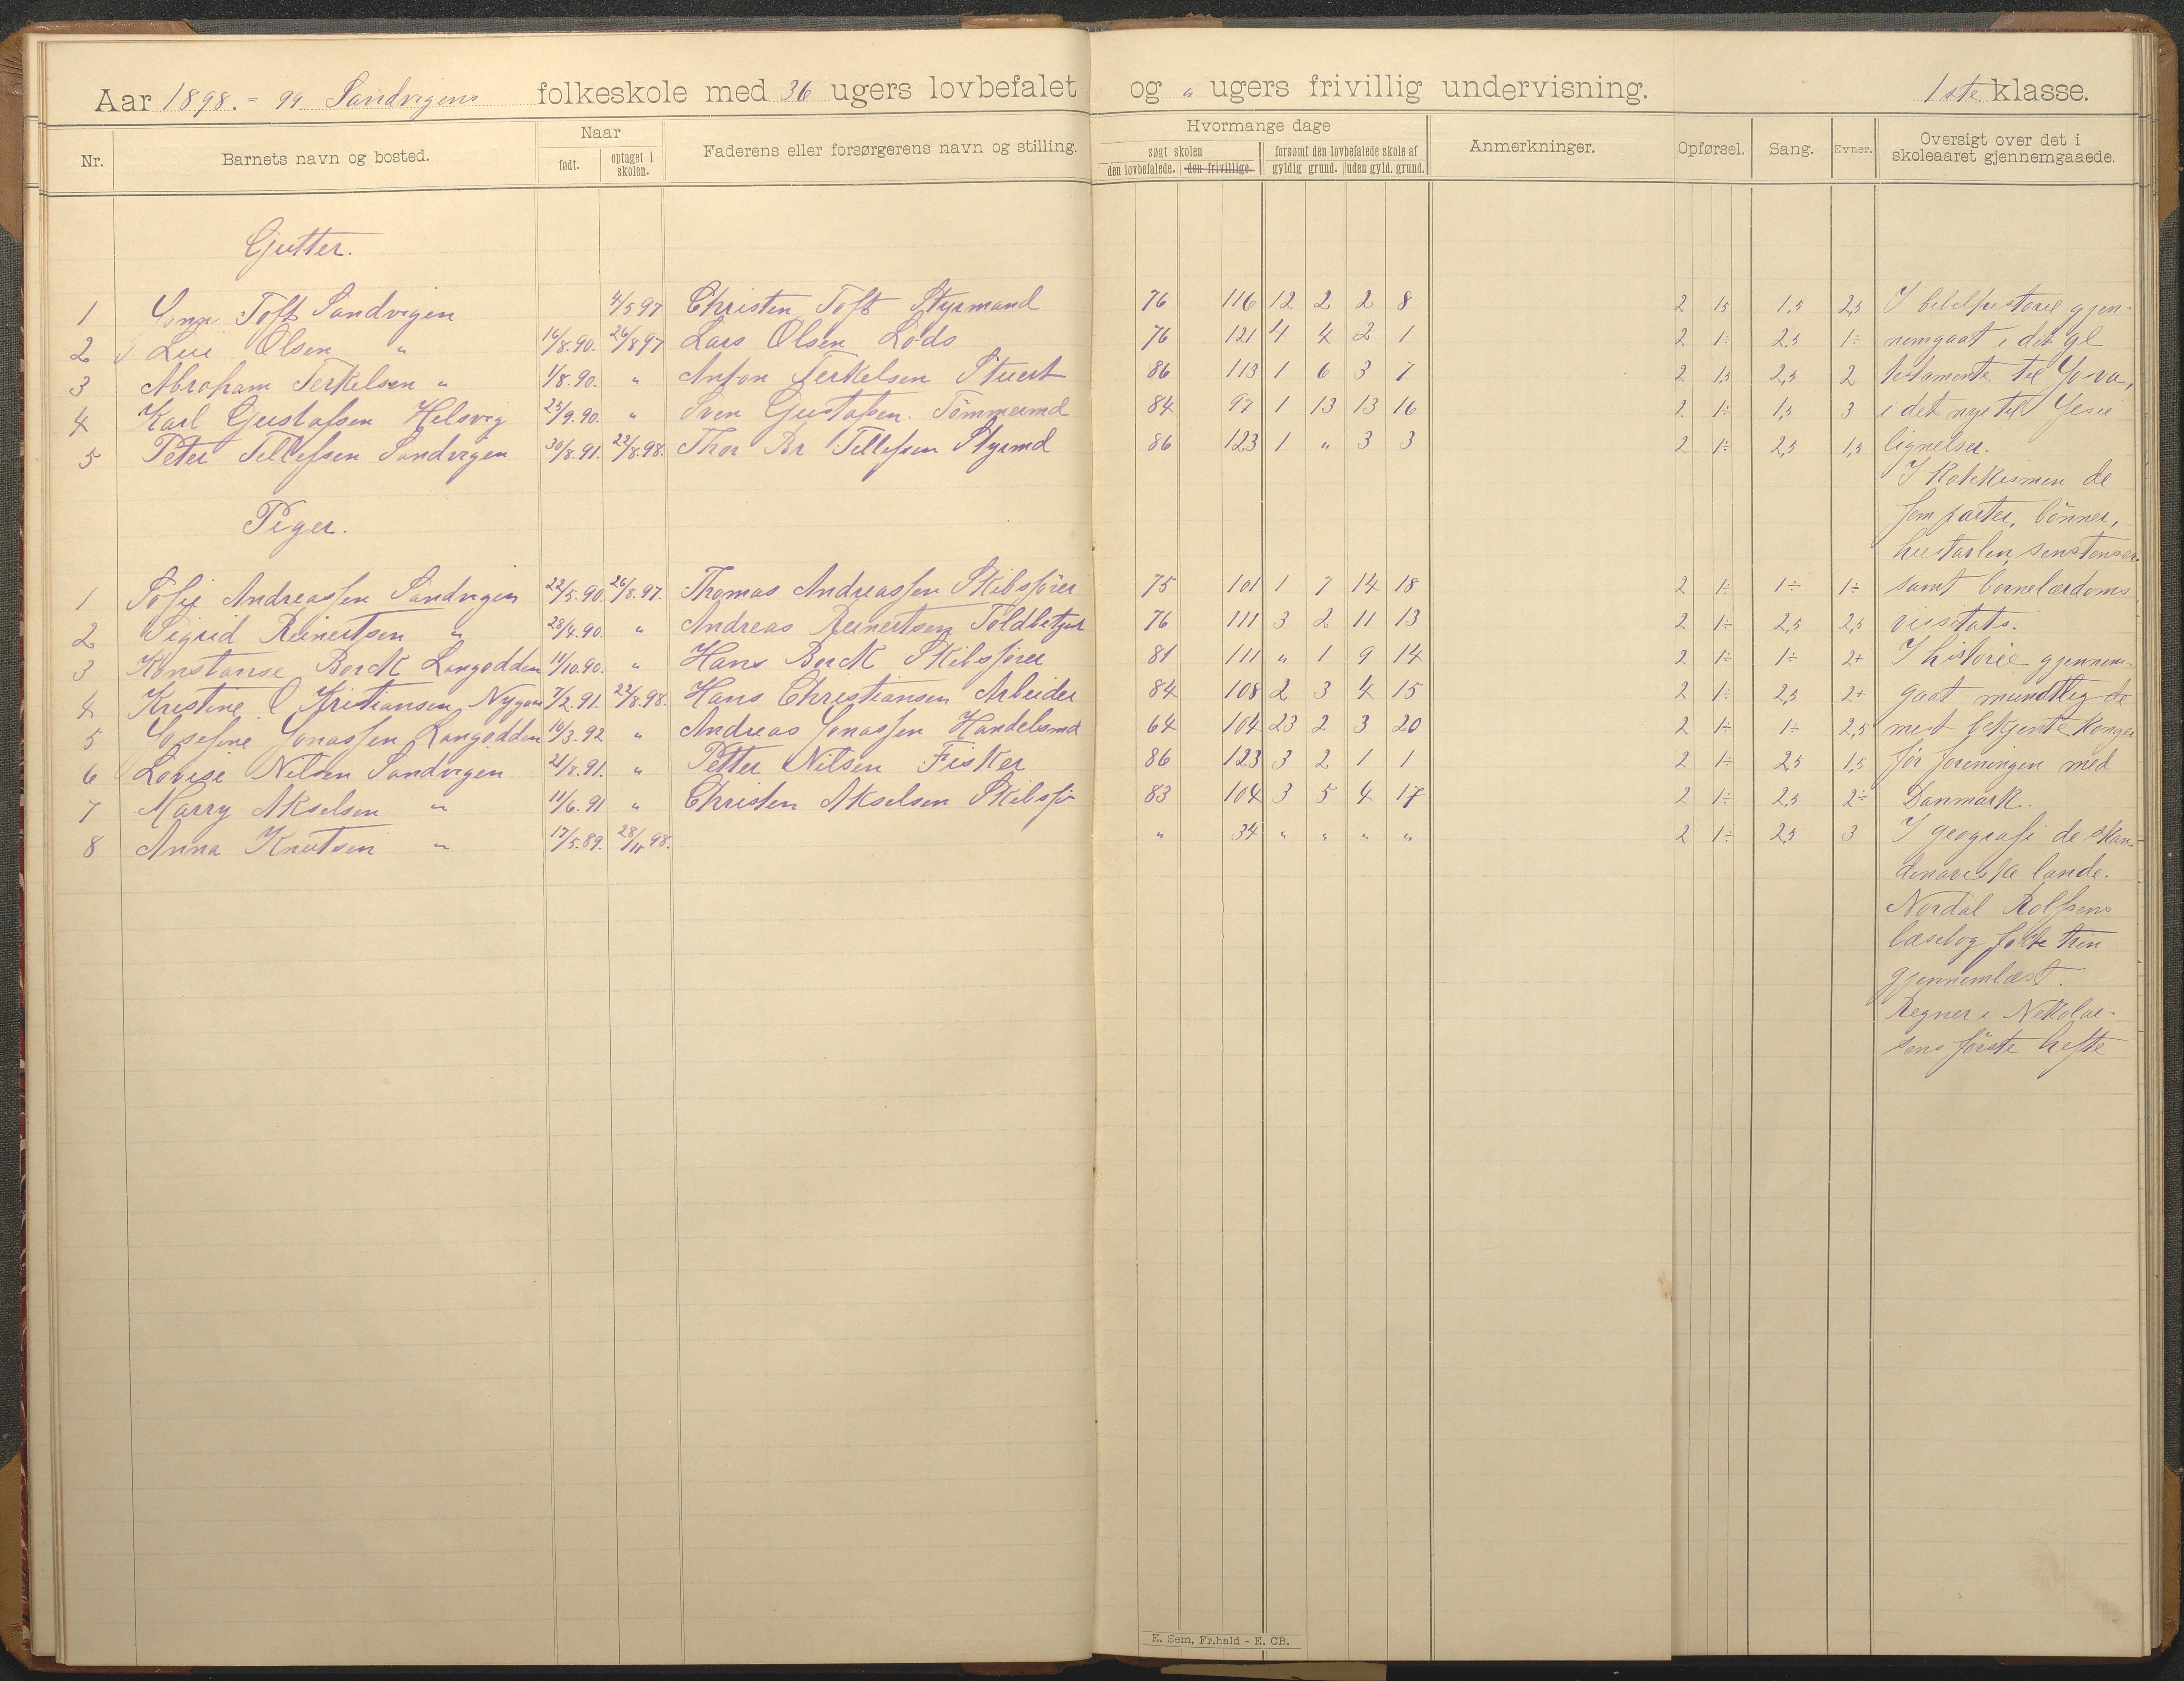 Aar 1898.- 99 Sandvigens folkeskole med 36 ugers lovbefalet og " ugers frivillig undervisning. 1ste klasse.
Nr. Barnets navn og bosted. Naar født. optaget i skolen. Faderens eller forsørgerens navn og stilling. Hvormange dage søgt skolen den lovbefalede. den frivillige. forsømt den lovbefalede skole af gyldig grund. uden gyld. grund. Anmerkninger. Opførsel. Sang. Evner. Oversigt over det i skoleaaret gjennemgaaede.
Gutter.
1 Toft Sandvigen 4/5 97 Christen Toft Styrmand 76 116 12 2 2 8 2 1,5 1,5 2,5 I bibelhistorie gjen-
2 Olsen " 16/8.90. 26/8 97 Lars Olsen Lods 76 121 4 4 2 1 2 1÷ 2,5 1÷ nemgaat i det gl
3 Abraham Terkelsen " 1/8.90. " Anton Terkelsen Stuert 86 113 1 6 3 7 2 1,5 2,5 2 testamente til
4 Karl Gustafsen Helsvig 23/9.90. " Sven Gustafsen. Tømmermd 84 97 1 13 13 16 2 1÷ 1,5 3 i det nye til Jesu
5 Peter Tellefsen Sandvigen 30/8.91. 22/8.98. Thor Br Tellefsen Styrmd 86 123 1 " 3 3 2 1÷ 2,5 1,5 lignelser.
I Katekismen de
fem parter, bønner,
Piger.
hustavlen,
1 Sofie Andreassen Sandvigen 22/5.90. 26/8.97. Thomas Andreassen Skibsfører 75 101 1 7 14 18 2 1÷ 1÷ 1÷ samt børnelærdoms
2 Sigrid Reinertsen " 28/4.90. " Andreas Reinertsen Toldbetjent 76 111 3 2 11 13 2 1÷ 2,5 2,5
3 Konstanse Borck Langodden 11/10.90. " Hans Borck Skibsfører 81 111 " 1 9 14 2 1÷ 1÷ 2+ I historie gjennem-
4 Kristine Kristiansen 7/2.91. 22/8.98. Hans Christiansen Arbeider 84 108 2 3 4 15 2 1÷ 2,5 2+ gaat mundtlig de
5 Josefine Jonassen Langodden 14/3.92 " Andreas Jonassen Handelsmd 64 104 23 2 3 20 2 1÷ 1÷ 2,5 mest bekjente konger
6 Lovise Nilsen Sandvigen 21/8.91. " Petter Nilsen Fisker 86 123 3 2 1 1 2 1÷ 2,5 1,5 før foreningen med
7 Marry Akselsen " 11/6.91 " Christen Akselsen Skibsfø 83 104 3 5 4 17 2 1÷ 2,5 2÷ Danmark.
8 Anna Knutsen " 17/5.89. 28/11 98. " 34 " " " " 2 1÷ 2,5 3 I geografi de skan-
dinaviske lande.
Nordal Rolfsens
læsebog første trin
gjennemlæst.
Regnet i Nikolai-
sens første hefte
E. Sem, Fr.hald - E. CB.